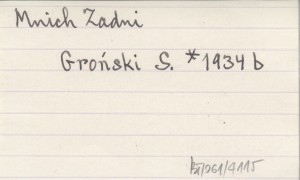 Mnich Zadni
Groński S. *1934 b
/261/4115